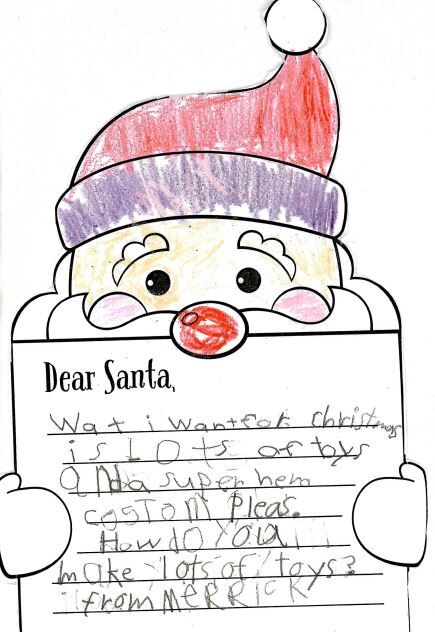 Dear Santa,
Wat i want for christmas
is LOts of toys
aNda super hem
cosTom pleas.
How dO YOU
make lots of toys?
from MERRICK